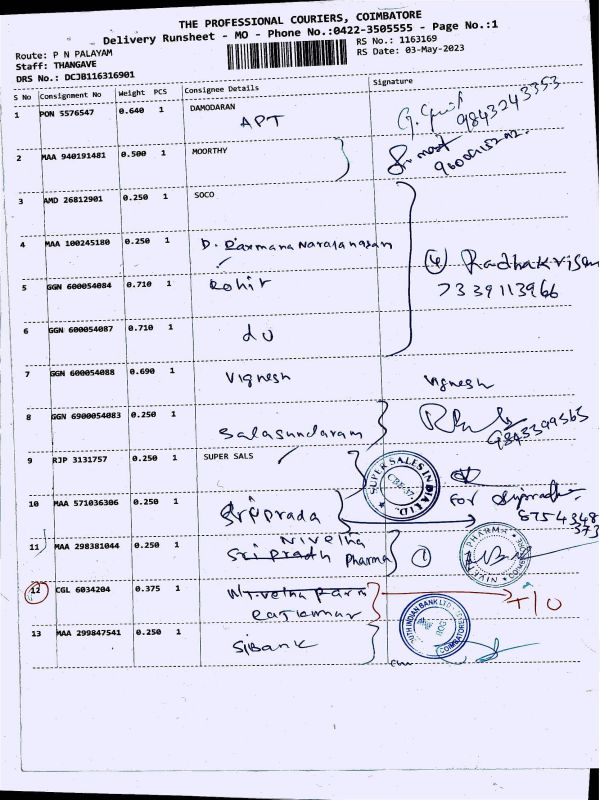 THE PROFESSIONAL COURIERS, COIMBATORE
Delivery Runsheet - MO - Phone No.:0422-3505555 - Page No.:1
Route: P N PALAYAM
Staff: THANGAVE
DRS No.: DCJB116316901
RS No.: 1163169
RS Date: 03-May-2023
S No Consignment No Weight PCS Consignee Details Signature
1 PON 5576547 0.640 1 DAMODARAN
APT
9843243353
2 MAA 940191481 0.500 1 MOORTHY
3 AMD 26812901 0.250 1 SOCO
4 MAA 100245180 0.250 1 D.
5 GGN 600054084 0.710 1 Rohit
7339113966
6 GGN 600054087 0.710 1 do
7 GGN 600054088 0.690 1 Vignesh Vignesh
8 GGN 6900054083 0.250 1 Balasundaram
9843399565
9 RJP 3131757 0.250 1 SUPER SALS
SUPER SALES INDIA LTD.
10 MAA 571036306 0.250 1 Sripprada
For
11 MAA 298381044 0.250 1 Nivetha
Pharma 1
12 CGL 6034204 0.375 1 Rajkumar
T/O
13 MAA 299847541 0.250 1 SIBANK
SOUTH INDIAN BANK LTD
COIMBATORE